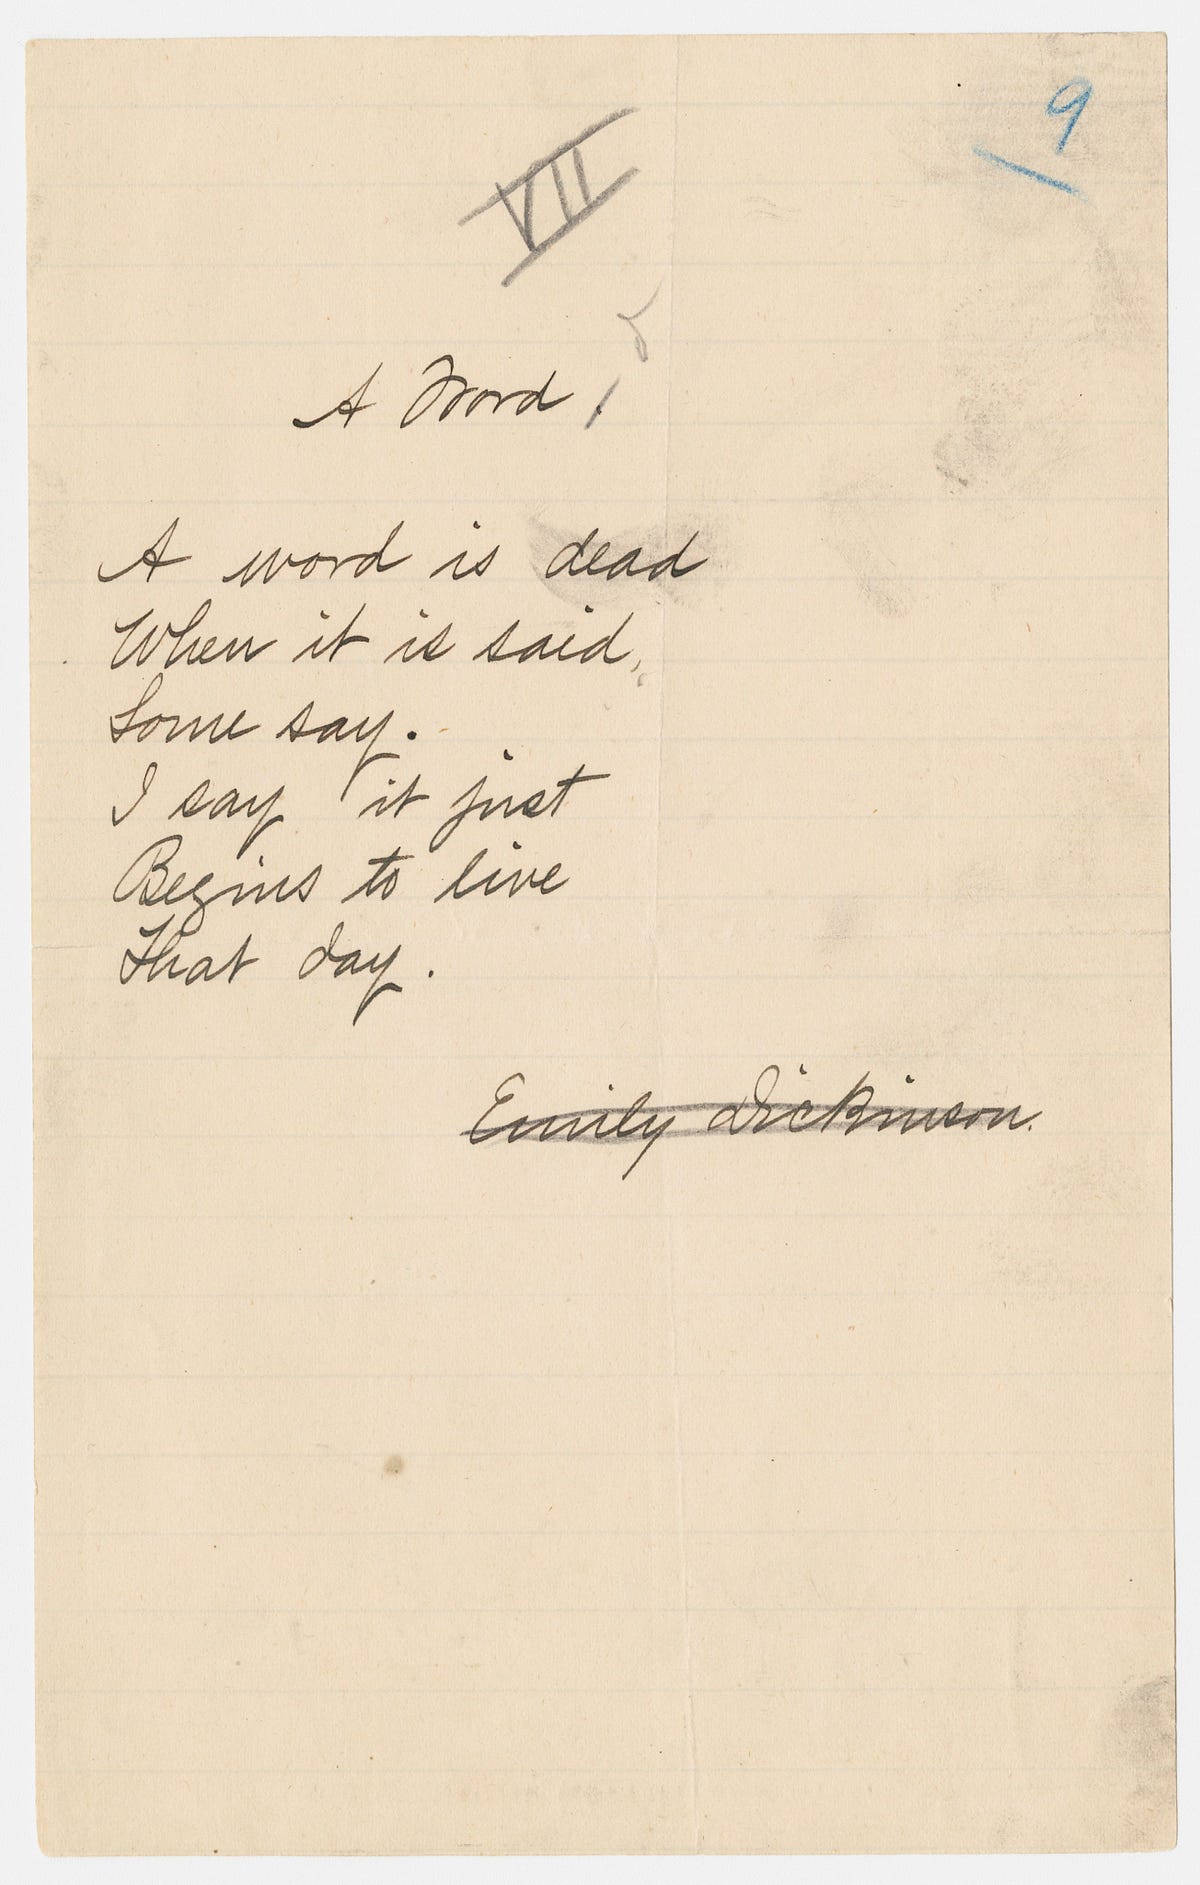 9
VII
A Word.
A word is dead
When it is said,
Some say.
I say it just
Begins to live
That day.
Emily Dickinson.